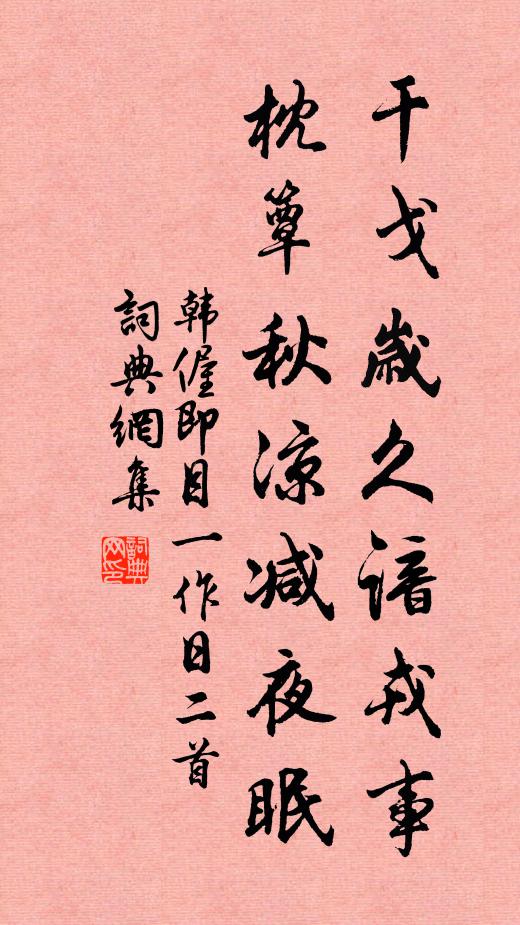 干戈歳久諳戎事
枕簟秋涼減夜眠
韩偓即目一作日二首
詞典網集
詞典网印